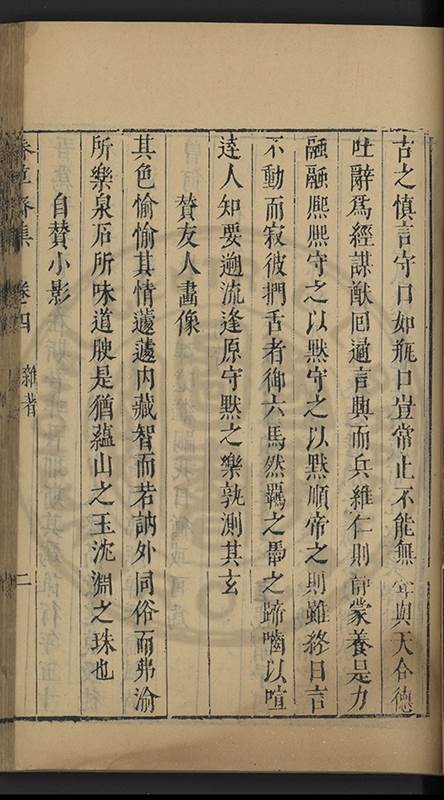 古之慎言守口如瓶口豈常止不能無言與天合德
吐辭爲經謀猷囘遹言興而兵維仁則靜蒙養是力
融融熈熈守之以默守之以默順帝之則雖終日言
不動而寂彼捫舌者御六馬然羈之馽之蹄嚙以喧
逹人知要遡流逢原守默之樂孰測其玄
贊友人畫像
其色愉愉其情蘧蘧内藏智而若訥外同俗而弗渝
所樂泉石所味道腴是猶蘊山之玉沈淵之珠也
自贊小影
集 卷四 雜著 二